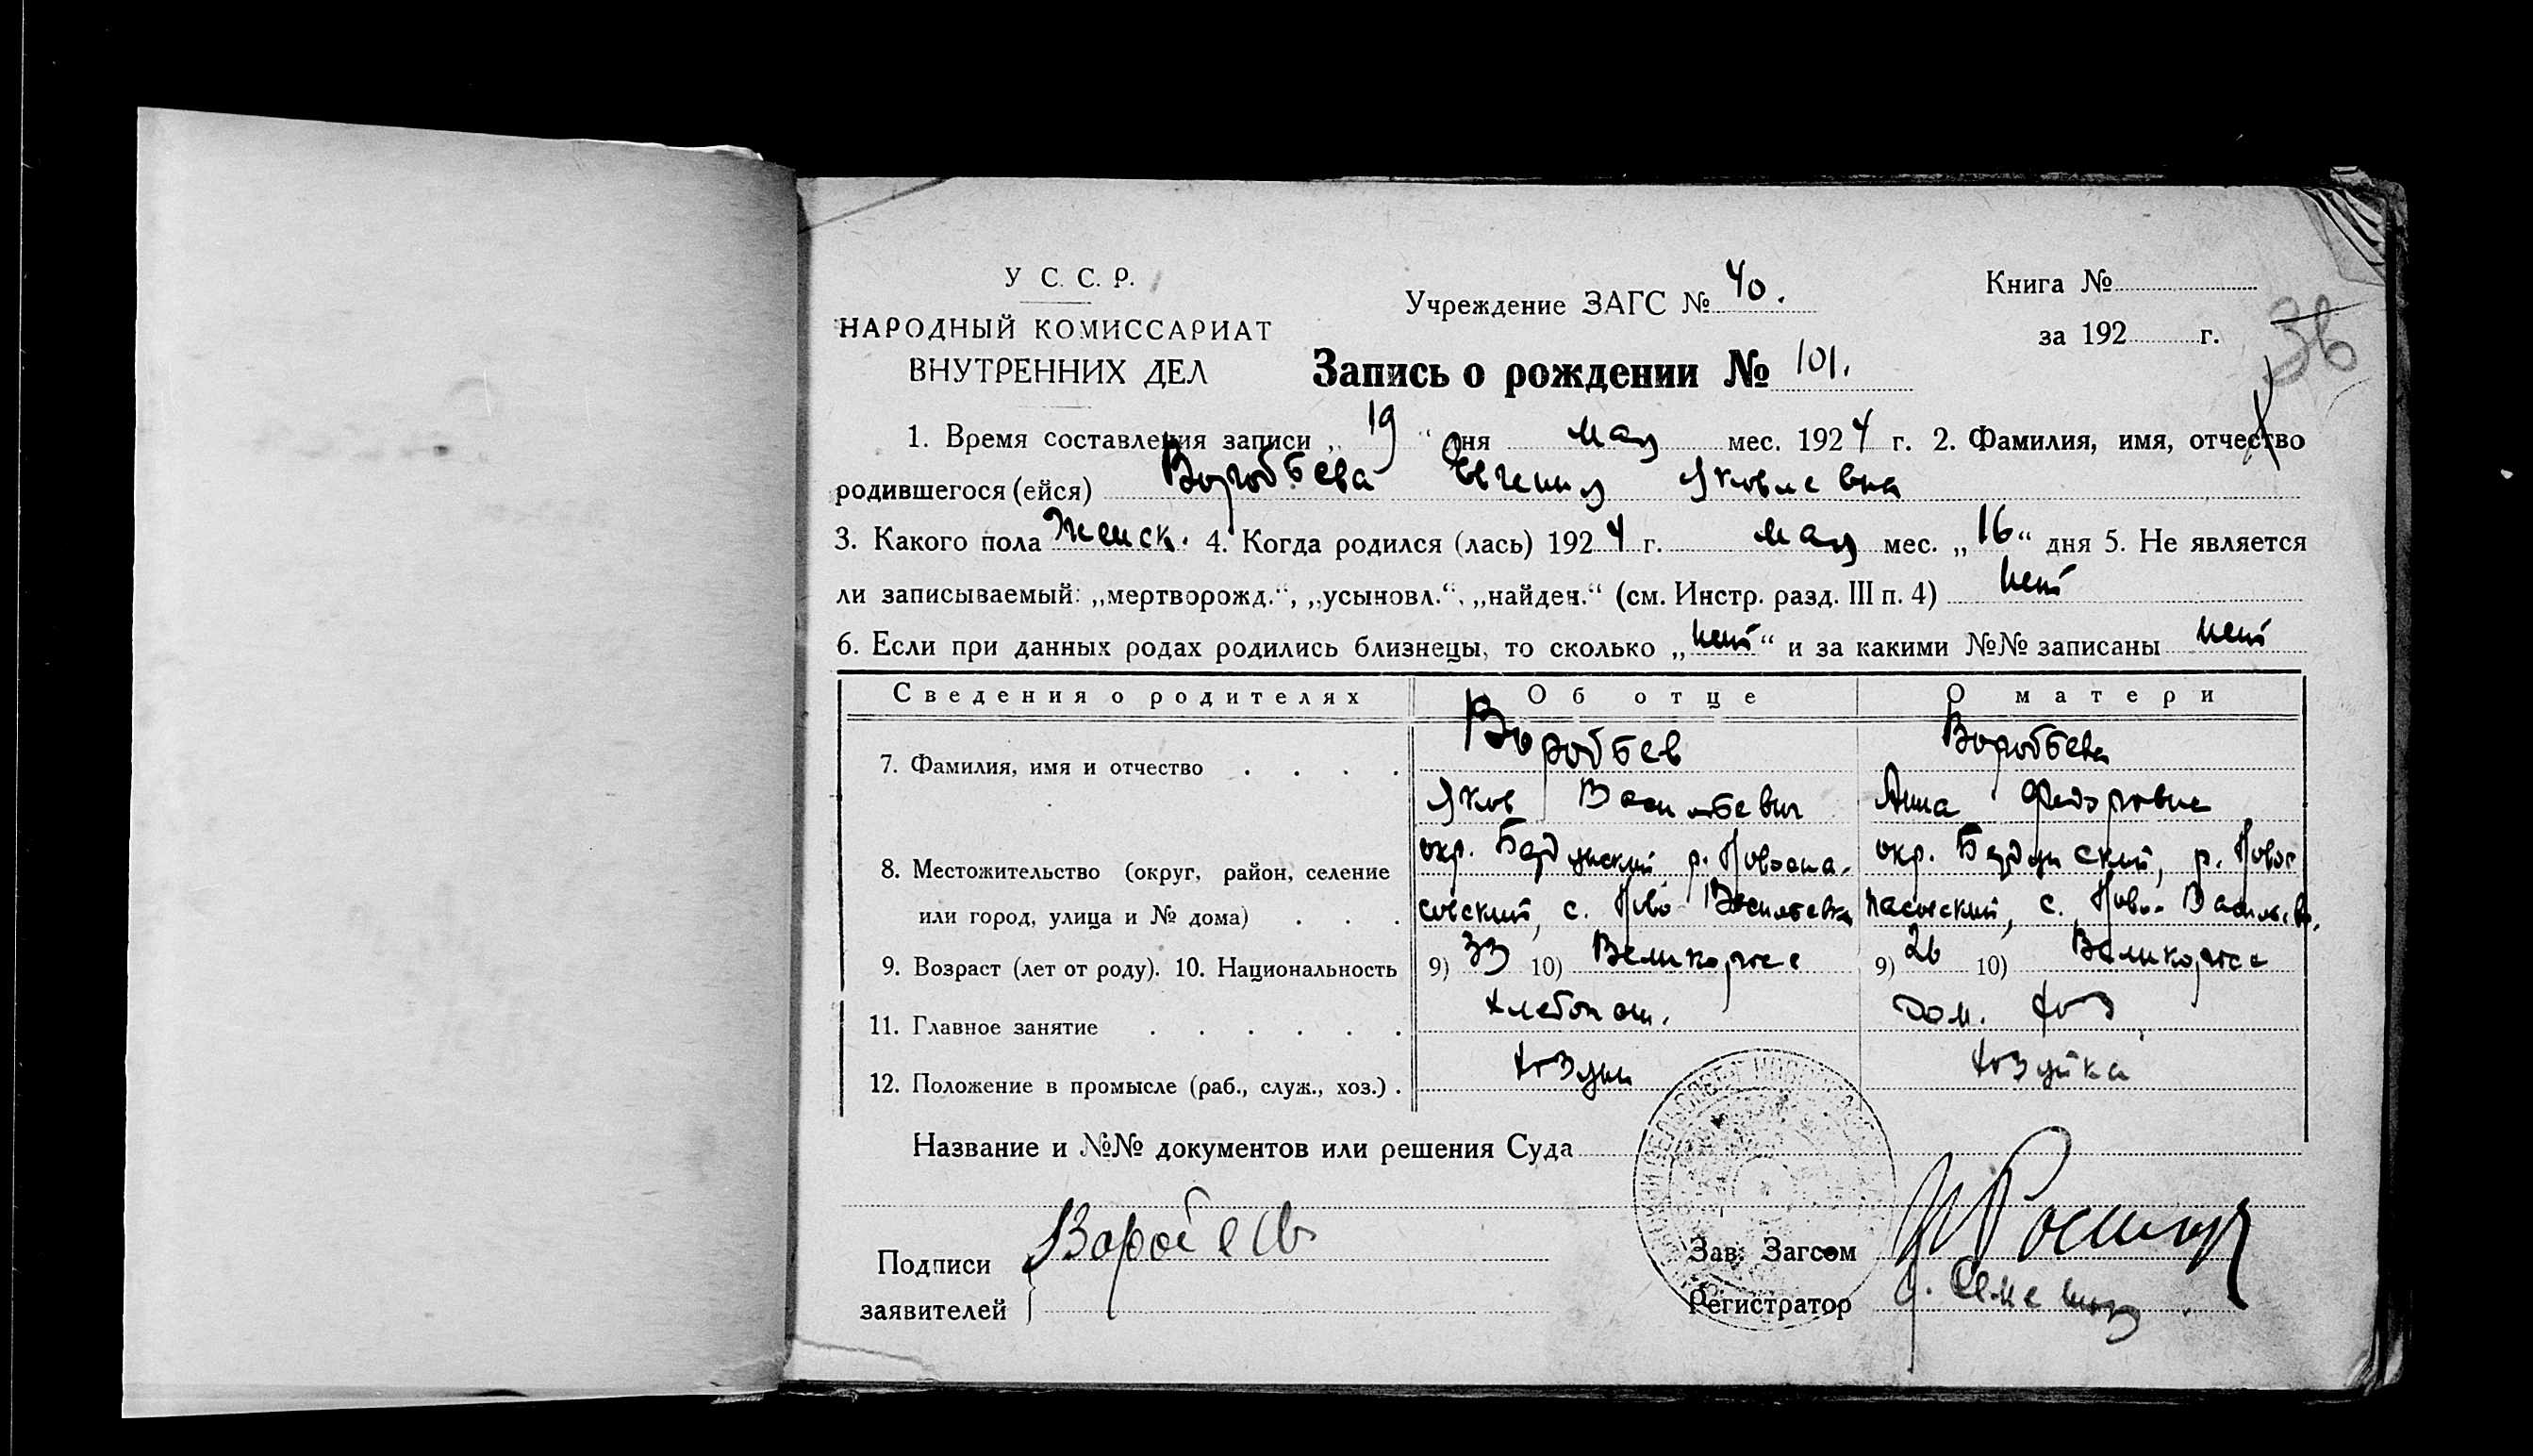 У С. С. Р.
НАРОДНЫЙ КОМИССАРИАТ
ВНУТРЕННИХ ДЕЛ
Учреждение ЗАГС № 40.
Книга №
за 192 г.
36
Запись о рождении № 101.
1. Время составления записи „ 19 “ дня мая мес. 1924 г. 2. Фамилия, имя, отчество
родившегося (ейся) Воробьева Евгения Яковлевна
3. Какого пола Женск. 4. Когда родился (лась) 1924 г. мая мес. „16“ дня 5. Не является
ли записываемый: „мертворожд.“, „усыновл.“, „найден.“ (см. Инстр. разд. III п. 4) нет
6. Если при данных родах родились близнецы, то сколько „нет“ и за какими №№ записаны нет
Сведения о родителях Об отце О матери
7. Фамилия, имя и отчество . . . . Воробьев Воробьева
Яков Васильевич Анна Федоровна
8. Местожительство (округ, район, селение окр. Бердянский р. Новоспа- окр. Бердянский, р. Новос
или город, улица и № дома) . . . совский, с. Ново-Васильевка пасовский, с. Ново-Васильевк.
9. Возраст (лет от роду). 10. Национальность 9) 33 10) Великоросс 9) 26 10) Великоросс
11. Главное занятие . . . . . . хлебопаш. дом. хоз
12. Положение в промысле (раб., служ., хоз.) . хозяин хозяйка
Название и №№ документов или решения Суда
Подписи
заявителей
Воробьев
Зав. Загсом
Регистратор